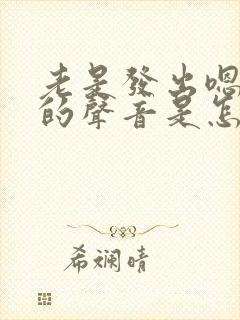 老是發出嗯
的聲音是怎
希斕晴